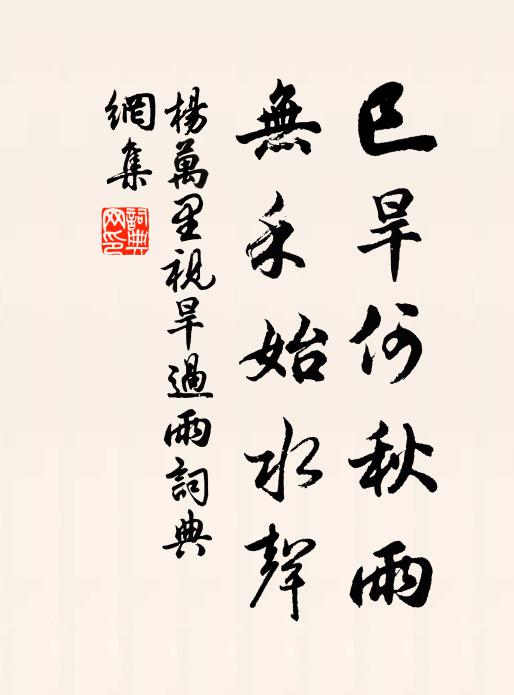 已旱何秋雨
無禾始水聲
楊萬里視旱過雨詞典
網集
詞典网印